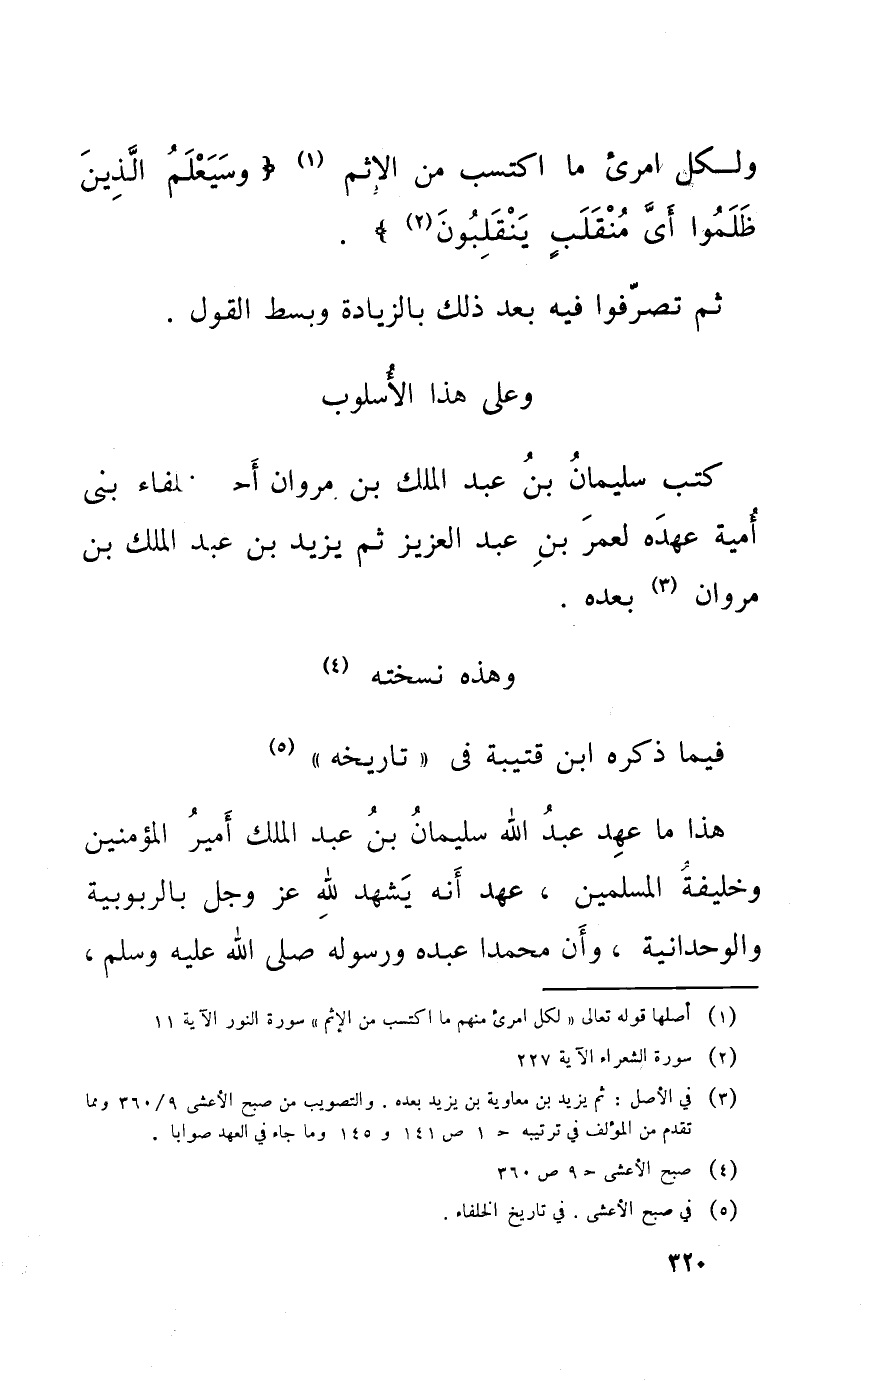 ولـكل امرئ ما اكتسب من الإثم (١) ﴿ وسَيَعْلَمُ الَّذِينَ
ظَلَمُوا أَىَّ مُنْقَلَبٍ يَنْقَلِبُونَ(٢) ﴾ .
ثم تصرّفوا فيه بعد ذلك بالزيادة وبسط القول .
وعلى هذا الأُسلوب
كتب سليمانُ بنُ عبد الملك بن مروان بنى
أُمية عهدَه لعمرَ بنِ عبد العزيز ثم يزيد بن عبد الملك بن
مروان (٣) بعده .
وهذه نسخته (٤)
فيما ذكره ابن قتيبة فى « تاريخه » (٥)
هذا ما عهِد عبدُ الله سليمانُ بنُ عبد الملك أَميرُ المؤمنين
وخليفةُ المسلمين ، عهد أَنه يَشهد للهِ عز وجل بالربوبية
والوحدانية ، وأَن محمدا عبده ورسوله صلى الله عليه وسلم ،
(١) أصلها قوله تعالى « لكل امرئ منهم ما اكتسب من الإثم » سورة النور الآية ١١
(٢) سورة الشعراء الآية ٢٢٧
(٣) في الأصل : ثم يزيد بن معاوية بن يزيد بعده . والتصويب من صبح الأعشى ٣٦٠/٩ ومما
تقدم من المؤلف في ترتيبه حـ ١ ص ١٤١ و ١٤٥ وما جاء في العهد صوابا .
(٤) صبح الأعشى حـ ٩ ص ٣٦٠
(٥) في صبح الأعشى . في تاريخ الخلفاء .
٣٢٠